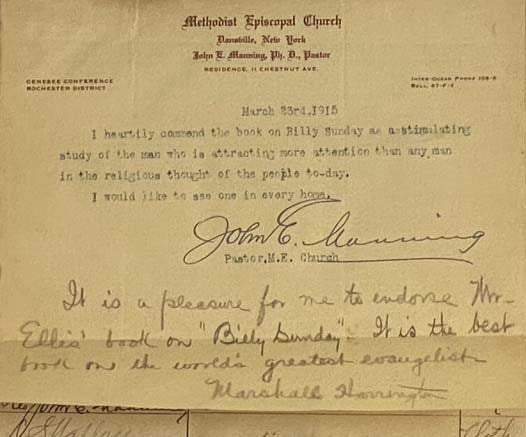 Methodist Episcopal Church
Dansville, New York
John E. Manning, Ph. D., Pastor
RESIDENCE, 11 CHESTNUT AVE.
GENESEE CONFERENCE
ROCHESTER DISTRICT
INTER-OCEAN PHONE 108-X
BELL, 67-F-4
March 23rd.1915
I heartily commend the book on Billy Sunday as a stimulating
study of the man who is attracting more attention than any man
in the religious thought of the people to-day.
I would like to see one in every home.
John E. Manning
Pastor,M.E. Church
It is a pleasure for me to endorse Mr.
Ellis' book on "Billy Sunday". It is the best
book on the world's greatest evangelist
Marshall Harrington
John E. Manning